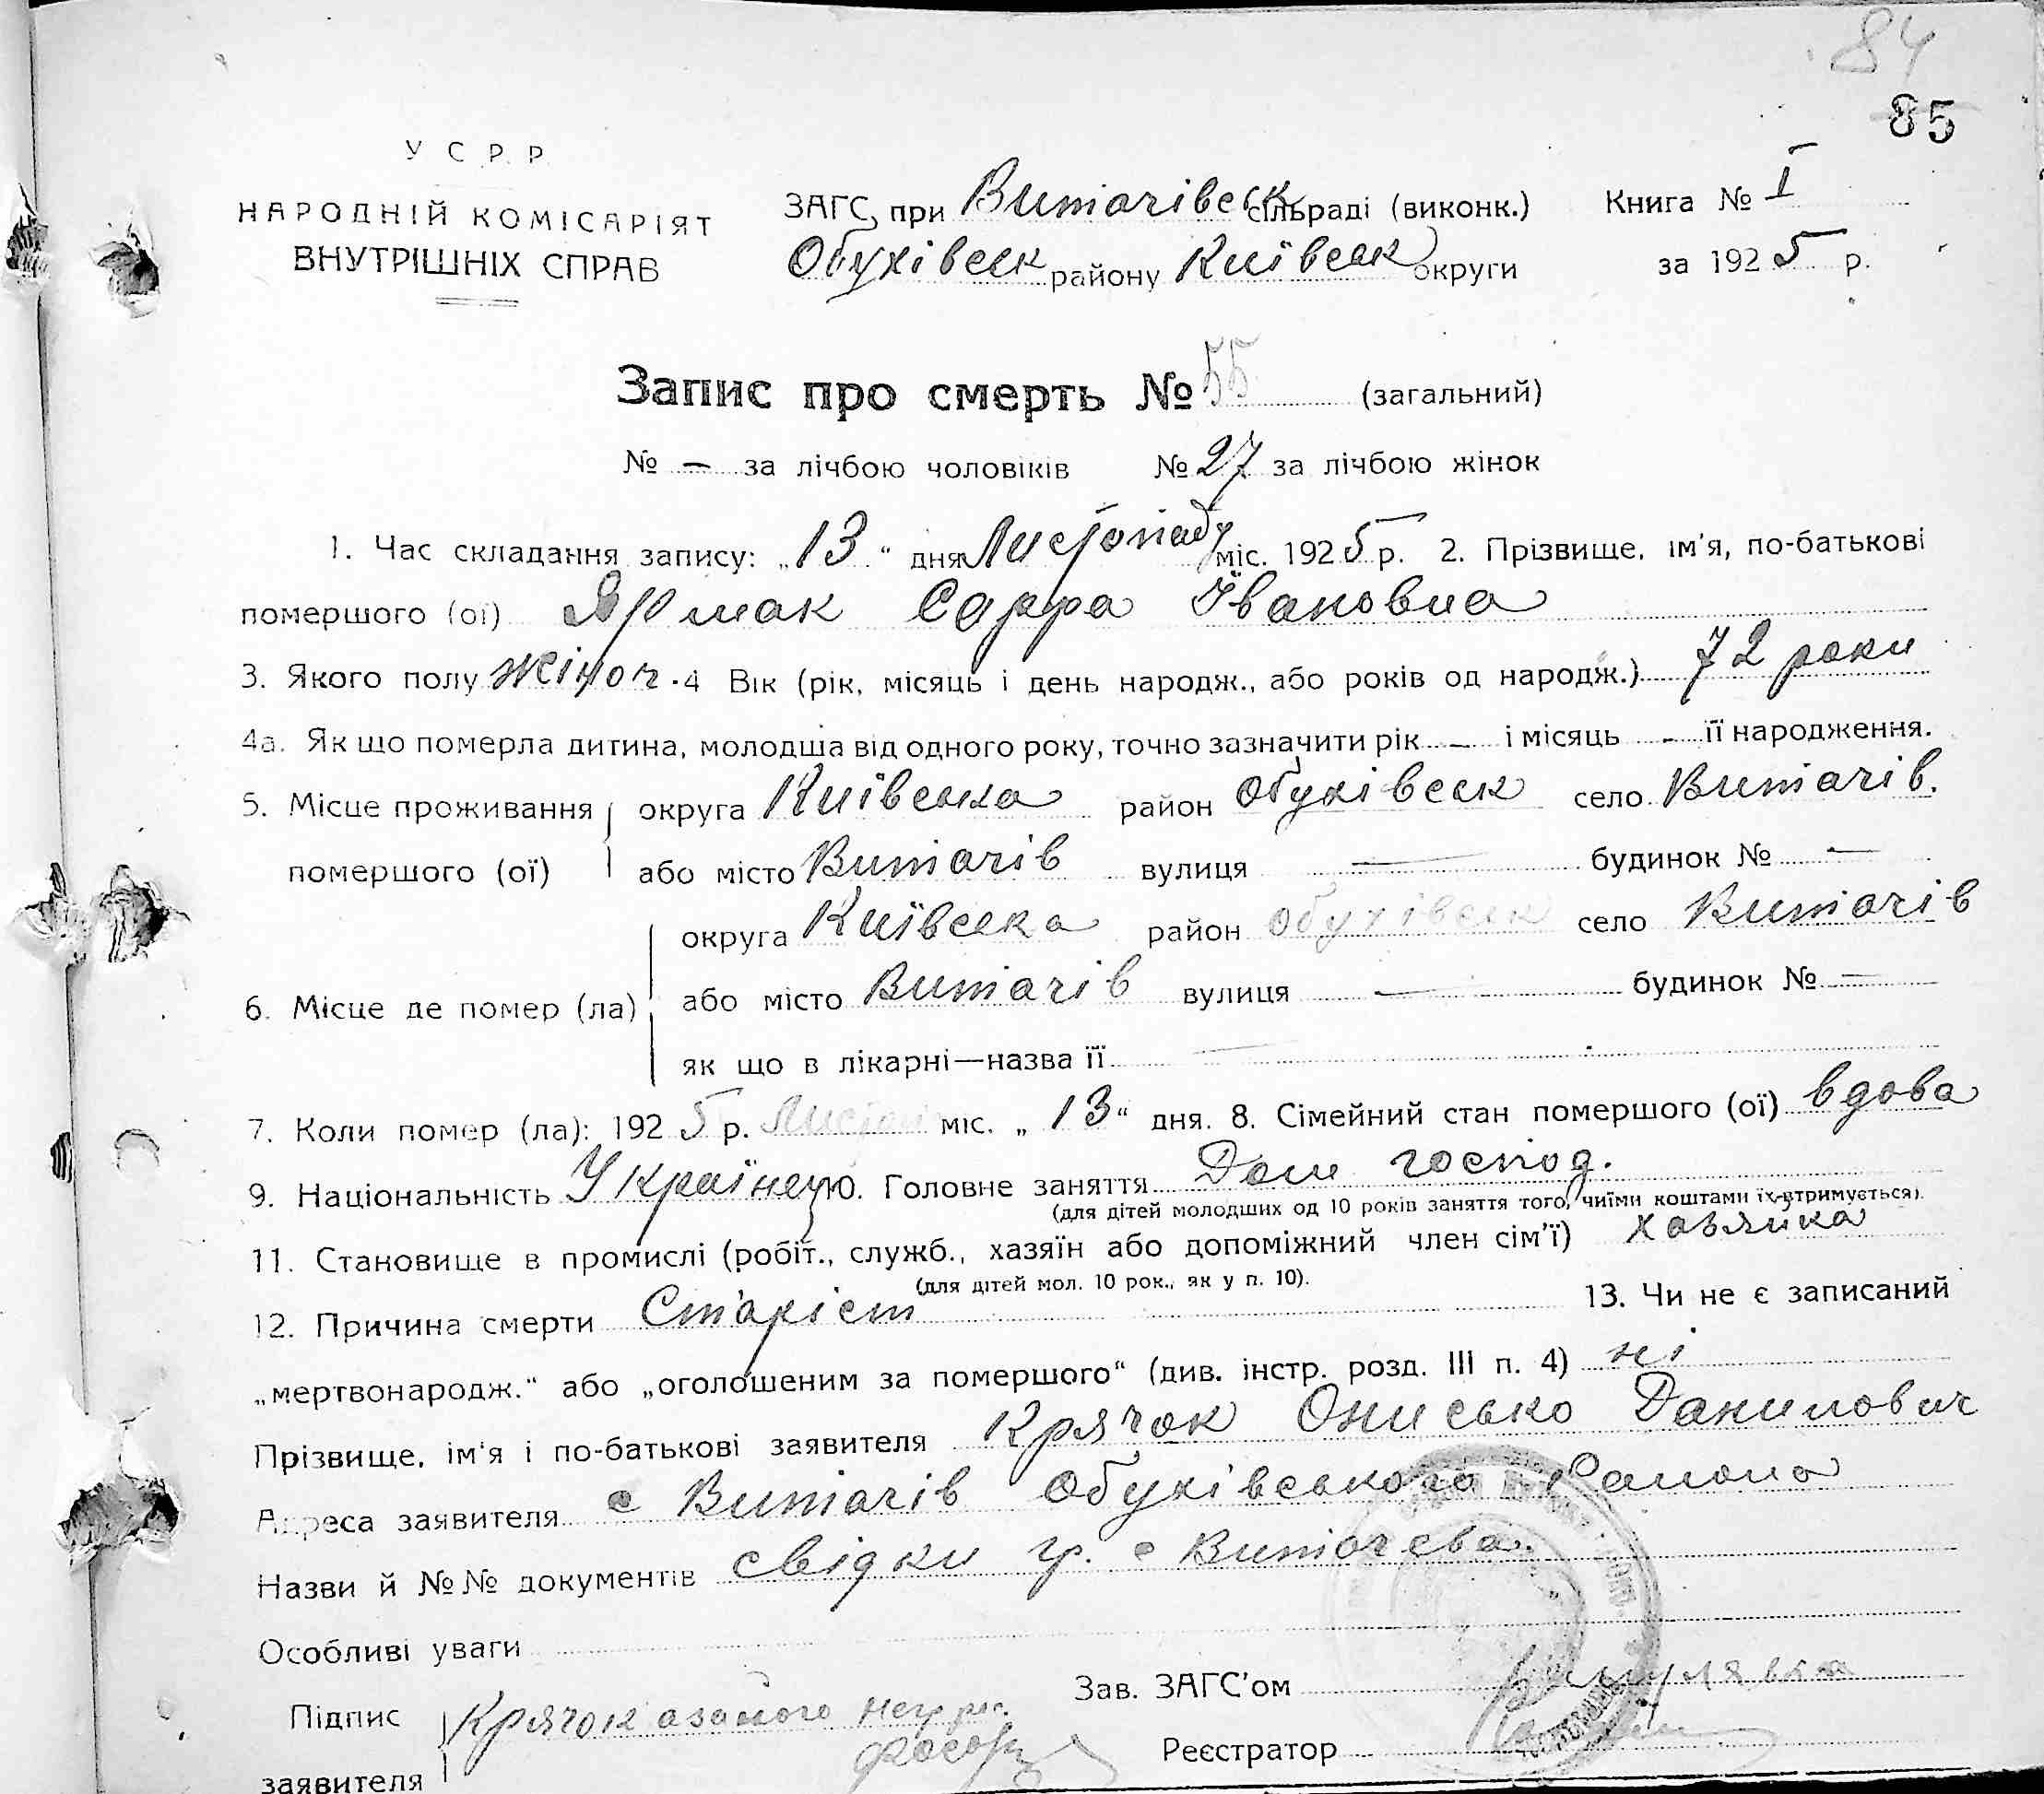 84
85
У С Р Р
НАРОДНІЙ КОМІСАРІЯТ
ВНУТРІШНІХ СПРАВ
ЗАГС при Витачівськ сільраді (виконк.) Книга № I
Обухівськ району Київськ округи за 1925 р.
Запис про смерть № 55 (загальний)
№ — за лічбою чоловіків № 27 за лічбою жінок
1. Час складання запису: „13“ дня Листопаду міс. 1925 р. 2. Прізвище, ім'я, по-батькові
помершого (ої) Ярмак Сарра Івановна
3. Якого полу жіноч. 4 Вік (рік, місяць і день народж., або років од народж.) 72 роки
4а. Як що померла дитина, молодша від одного року, точно зазначити рік — і місяць - її народження.
5. Місце проживання округа Київська район Обухівськ село Витачів.
помершого (ої) або місто Витачів вулиця — будинок № —
округа Київська район Обухівськ село Витачів
6. Місце де помер (ла) або місто Витачів вулиця — будинок № —
як що в лікарні—назва її —
7. Коли помер (ла): 1925 р. Листоп міс. „13“ дня. 8. Сімейний стан помершого (ої) вдова
9. Національність Українець 10. Головне заняття Дом господ.
(для дітей молодших од 10 років заняття того, чиїми коштами їх утримується)
11. Становище в промислі (робіт., служб., хазяїн або допоміжний член сім'ї) хазяйка
(для дітей мол. 10 рок., як у п. 10).
12. Причина смерти Старіст 13. Чи не є записаний
„мертвонародж.“ або „оголошеним за помершого“ (див. інстр. розд. III п. 4) ні
Прізвище, ім'я і по-батькові заявителя Крячок Онисько Данилович
Адреса заявителя с Витачів Обухівського Района
Назви й №№ документів свідки гр. с Витачева.
Особливі уваги
Зав. ЗАГС'ом
Підпис Крячок а за його негр.
Реєстратор
заявителя